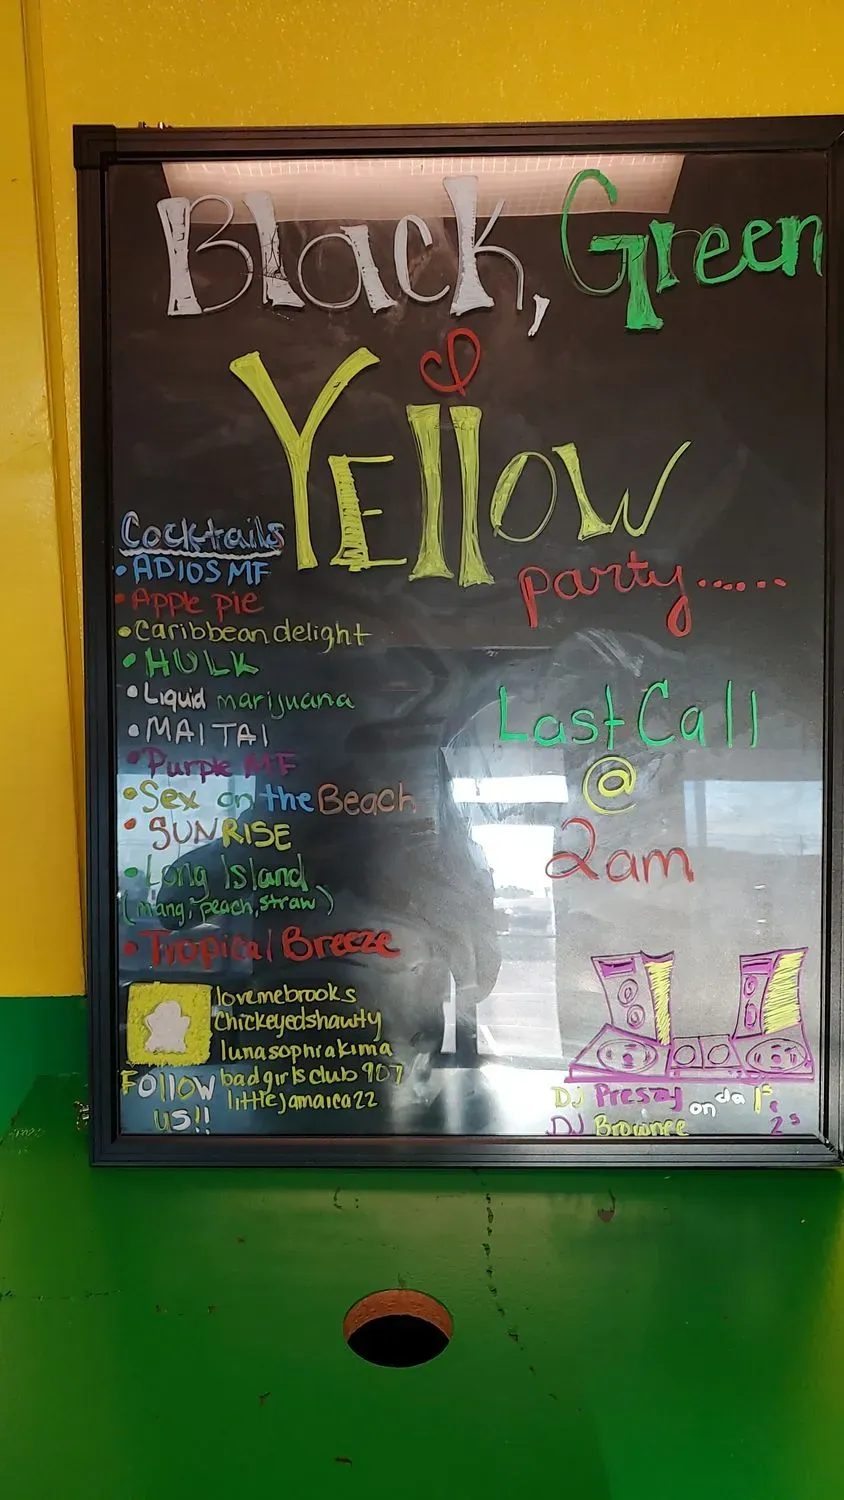 Black, Green
Yellow
party......
Cocktails
• ADIOS MF
• Apple pie
• Caribbean delight
• HULK
• Liquid marijuana
• MAI TAI
• Purple MF
• Sex on the Beach
• SUNRISE
• Long Island
(mang, peach, straw)
• Tropical Breeze
Last Call
@
2am
lovemebrooks
Chickeyedshawty
lunasophiakima
badgirlsclub907
littlejamaica22
Follow
us!!
DJ Preszy on da 1s
DJ Brownee 2s